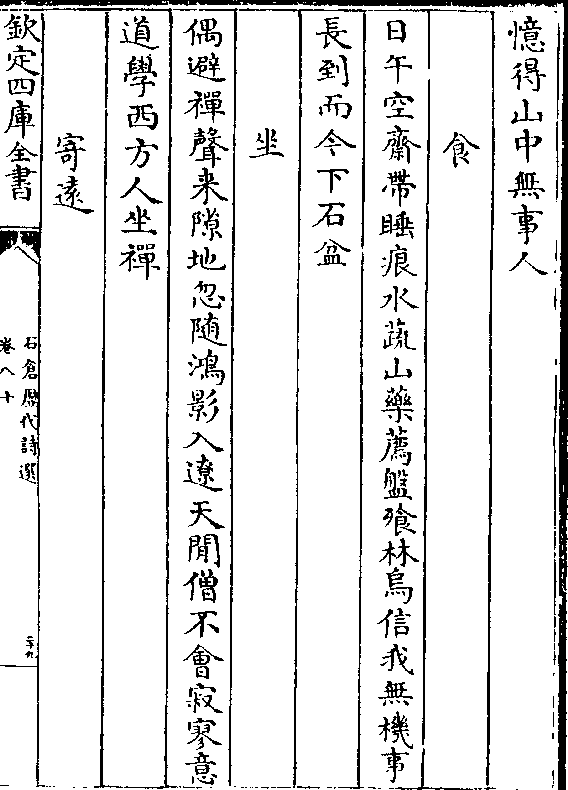 憶得山中無事人
食
日午空齋帶睡痕水蔬山藥薦盤飱林烏信我無機事
長到而今下石盆
坐
偶避禪聲来隙地忽随鴻影入遼天閒僧不會寂寥意
道學西方人坐禪
寄遠
欽定四庫全書
石倉歴代詩選
卷八十
二十九